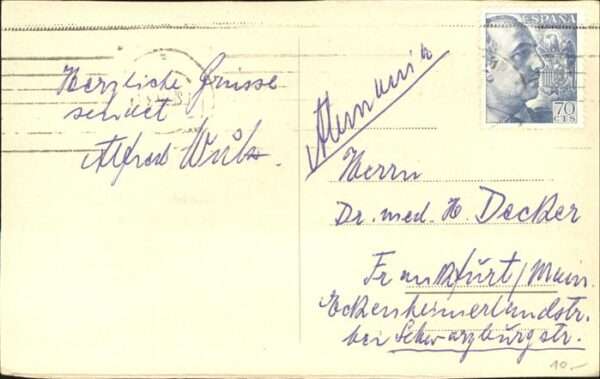 Herzliche Grüsse
sendet
Alfred
Alemania
ESPAÑA
70
CTS
Herrn
Dr. med. H. Decker
Frankfurt/Main.
Eckenheimerlandstr.
bei Schwarzburgstr.
10.-